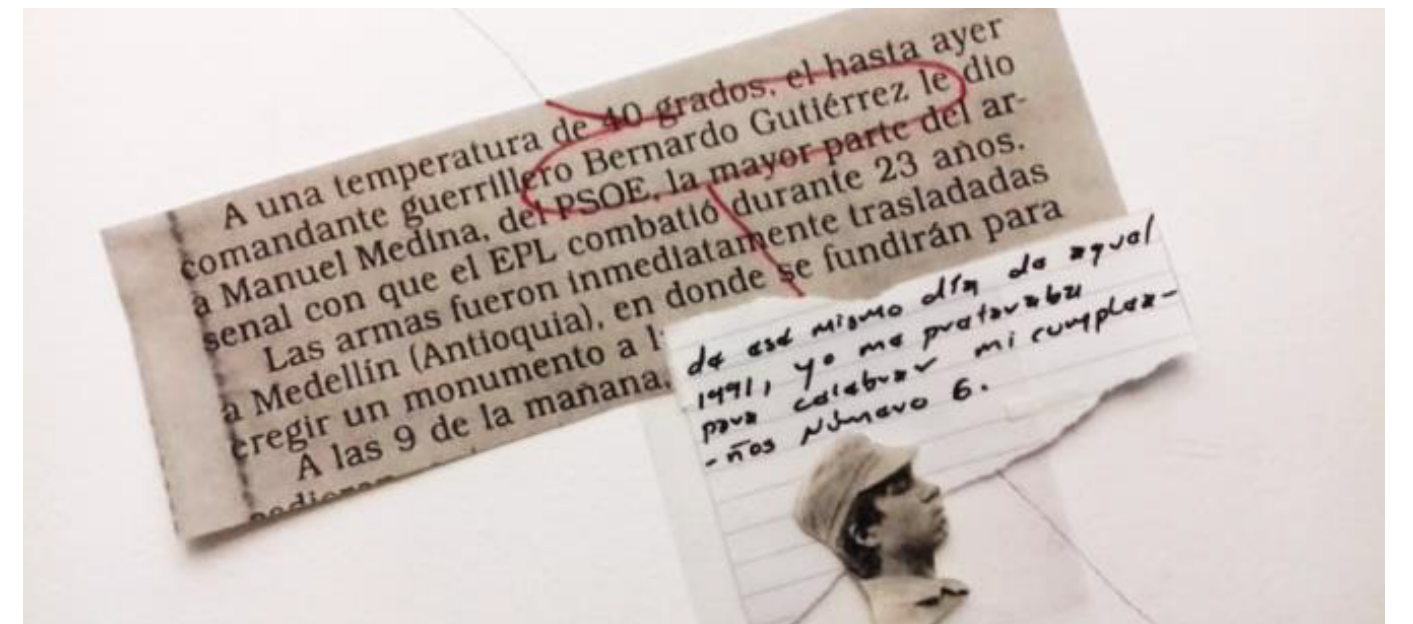 A una temperatura de 40 grados, el hasta ayer
comandante guerrillero Bernardo Gutiérrez le dio
a Manuel Medina, del PSOE, la mayor parte del ar-
senal con que el EPL combatió durante 23 años.
Las armas fueron inmediatamente trasladadas
a Medellín (Antioquia), en donde se fundirán para
eregir un monumento a
A las 9 de la mañana,
de ese mismo día de aquel
1991, yo me preparaba
para celebrar mi cumplea-
-ños Número 6.